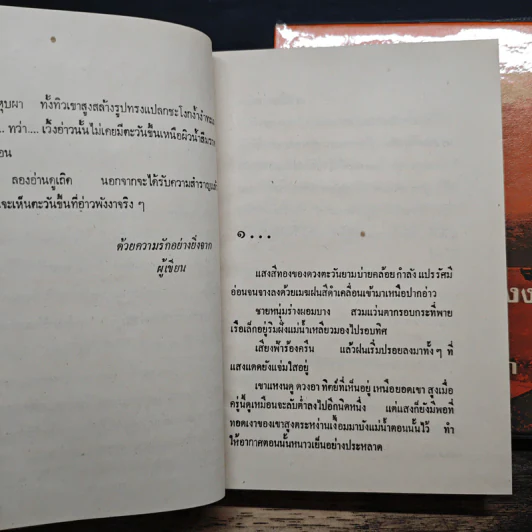 หุบผา ทั้งทิวเขาสูงสล้างรูปทรงแปลกชะโงกง้ำ
... ทว่า.... เวิ้งอ่าวนั้นไม่เคยมีตะวันขึ้นเหนือผิวน้ำ
อน
ลองอ่านดูเถิด นอกจากจะได้รับความสำราญแล้ว
จะเห็นตะวันขึ้นที่อ่าวพังงาจริง ๆ
ด้วยความรักอย่างยิ่งจาก
ผู้เขียน
๑...
แสงสีทองของดวงตะวันยามบ่ายคล้อย กำลัง แปรรัศมี
อ่อนจนจางลงด้วยเมฆฝนสีดำเคลื่อนเข้ามาเหนือปากอ่าว
ชายหนุ่มร่างผอมบาง สวมแว่นตากรอบกระที่พาย
เรือเล็กอยู่ริมฝั่งแม่น้ำเหลียวมองไปรอบทิศ
เสียงฟ้าร้องครืน แล้วฝนเริ่มปรอยลงมาทั้ง ๆ ที่
แสงแดดยังแจ่มใสอยู่
เขาแหงนดู ดวงอา ทิตย์ที่เห็นอยู่ เหนือยอดเขา สูงเมื่อ
ครู่นี้ดูเหมือนจะลับต่ำลงไปอีกนิดหนึ่ง แต่แสงก็ยังมีพอที่
ทอดเงาของเขาสูงตระหง่านเงื้อมมาบังแม่น้ำตอนนั้นไว้ ทำ
ให้อากาศตอนนั้นหนาวเย็นอย่างประหลาด